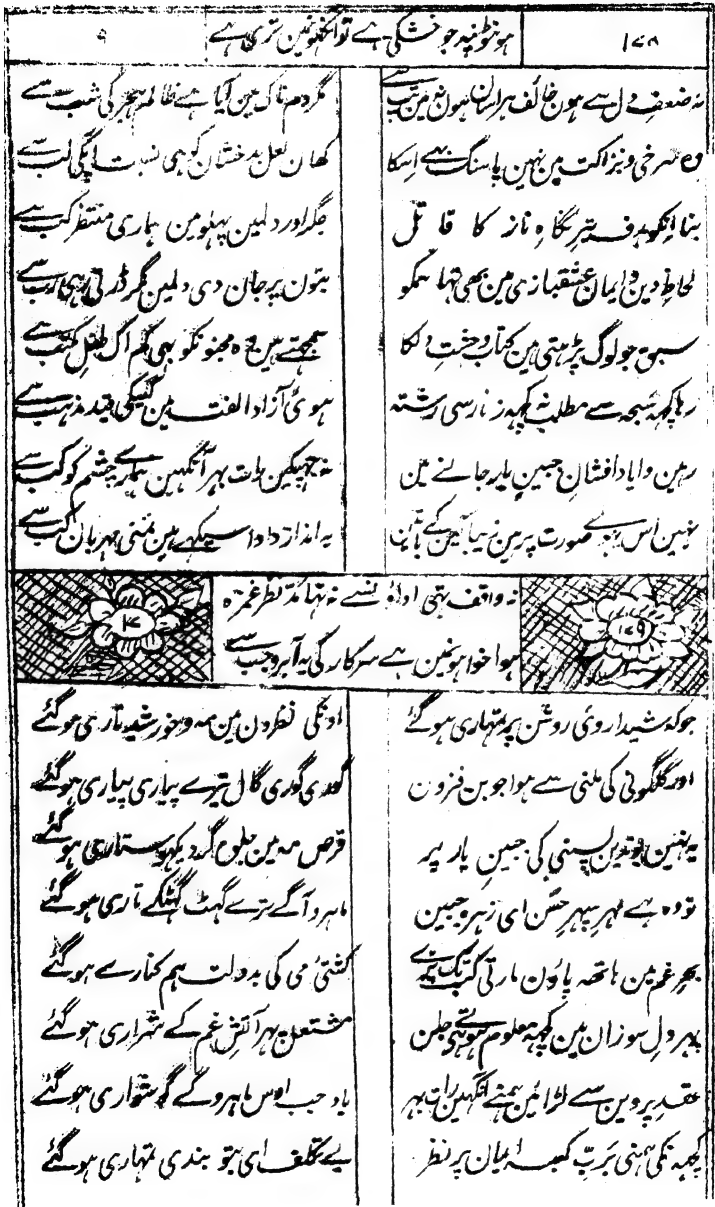 ۱۷۸
ہونٹونپہ جو خشکی ہے تو آنکھونمین تری ہے
۹
نہ ضعف دل سے ہون خائف ہراسان ہون نہ مین تب سے
مگر دم ناک مین آیا ہے ظالم ہجر کی شب سے
وہ سرخی و نزاکت مین نہین پاسنگ بہی اسکا
کہان لعل بدخشان کو ہی نسبت آپکی لب سے
بنا انکو ہدف تیر نگاہ ناز کا قاتل
جگر اور دلہین پہلو مین ہماری منتظر کب سے
لحاظ دین و ایمان عشقبازی مین بھی تہا ہمکو
بتون پر جان دی دلمین مگر ڈرتی رہی رب سے
سبق جو لوگ پڑہتی ہین کتاب وحشت دلکا
سمجہتے ہین وہ مجنونکو بہی کم اک طفل مکتب سے
رہا کچہہ سبحہ سے مطلب نہ کچہہ زنار سی رشتہ
ہوئی آزاد الفت مین کسیکی قید مذہب سے
رہین وا یاد افشان جبین یار جانے مین
نہ جہپکین رات بہر آنکہین ہماری چشم کوکب سے
نہین اس بہولی صورت پر مین زیبا کین کے باتین
یہ انداز و ادا سیکہے ہین منی مہربان کب سے
نہ واقف تہی ادا سے نہ تہا مد نظر غمزہ
ہوا خواہونمین ہے سرکار کی یہ آبرو جب سے
۱۷۹
۱۰
جو کہ شیدا روی روشن پر تمہاری ہو گئے
اونکی نظرون مین مہ و خورشید تاری ہو گئے
اور گلگونی کی ملنی سے ہوا جوبن فزون
گوری گوری گال تیرے پیاری پیاری ہو گئے
یہ نہین بوندین پسینی کی جبین یار پر
قرص مہ مین جلوہ گر دیکہو ستاری ہو گئے
تو وہ ہے مہر سپہر حسن ای زہرہ جبین
ماہرو آگے ترے گہٹ گہٹکے تاری ہو گئے
بحر غم مین ہاتھہ پاؤن مارتی کب تک
کشتئ می کی بدولت ہم کنارے ہو گئے
پہر دل سوزان مین کچہہ معلوم ہوتی ہی جلن
مشتعل پہر آتش غم کے شراری ہو گئے
عقد پروین سے لڑائین ہمنے آنکہین رات بہر
یاد جب اوس ماہرو کے گوشواری ہو گئے
کچہہ نکی ہمنی رب کعبہ ایمان پر نظر
بے تکلف ای بتو بندی تمہاری ہو گئے